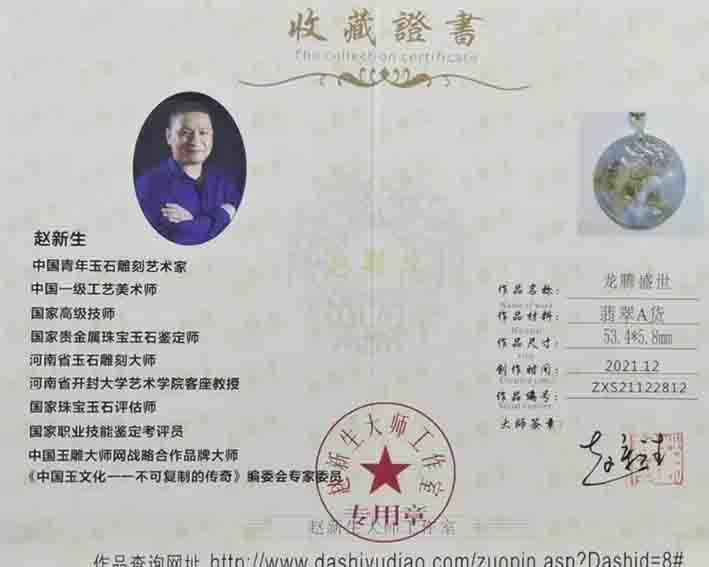 收藏證書
The collection certificate
赵新生
中国青年玉石雕刻艺术家
中国一级工艺美术师
国家高级技师
国家贵金属珠宝玉石鉴定师
河南省玉石雕刻大师
河南省开封大学艺术学院客座教授
国家珠宝玉石评估师
国家职业技能鉴定考评员
中国玉雕大师网战略合作品牌大师
《中国玉文化——不可复制的传奇》编委会专家委员
作品名称： 龙腾盛世
Name of work
作品材料： 翡翠A货
Material
作品尺寸： 53.4*5.8mm
创作时间： 2021.12
作品编号： ZXS21122812
大师签章：
赵新生大师工作室
专用章
赵新生大师工作室
作品查询网址 http://www.dashiyudiao.com/zuopin.asp?Dashid=8#